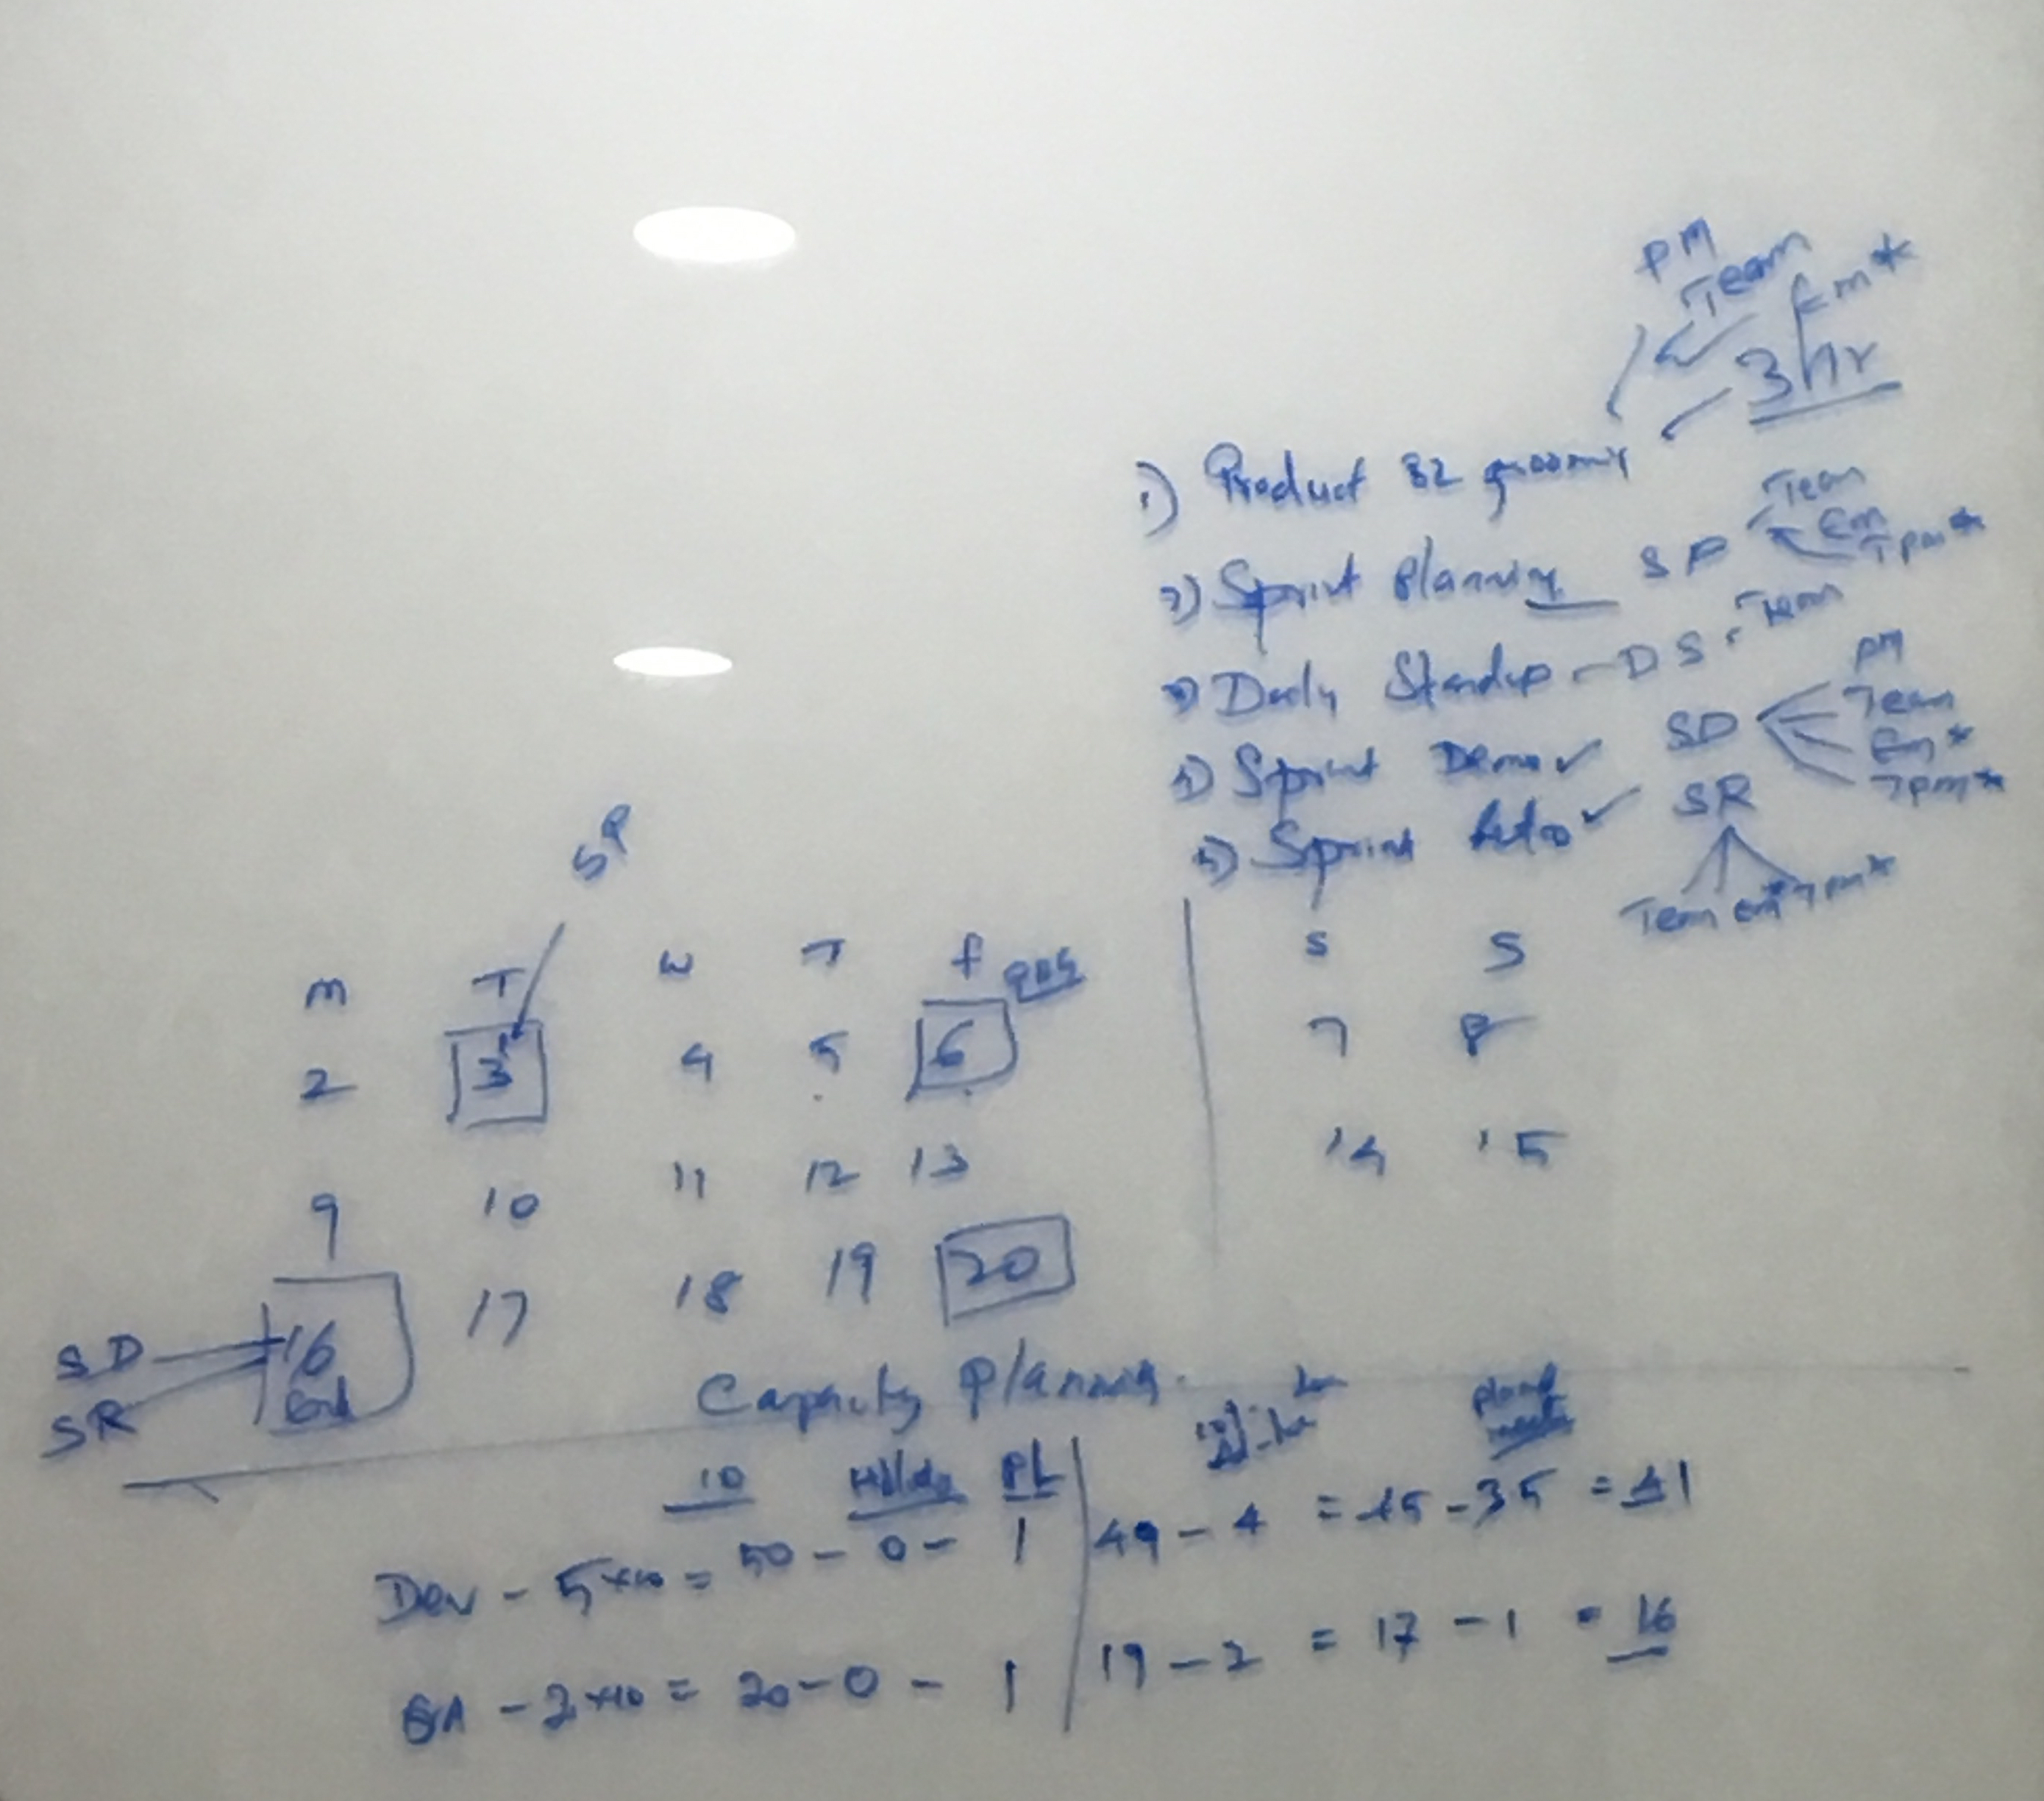 PM
Team
Em*
3hr
1) Product BL grooming
2) Sprint Planning SP Team
Em
Tpm*
3) Daily Standup - DS - Team
4) Sprint Demo ✓ SD PM
Team
Em*
Tpm*
5) Sprint Retro ✓ SR
Team Em* Tpm*
SP
M T W T F S S
2 3 4 5 6 7 8
9 10 11 12 13 14 15
16 17 18 19 20
End
SD
SR
Capacity Planning.
10 PL
Dev - 5x10 = 50 - 0 - 1 | 49 - 4 = 45 - 35 = 41
QA - 2x10 = 20 - 0 - 1 | 19 - 2 = 17 - 1 = 16